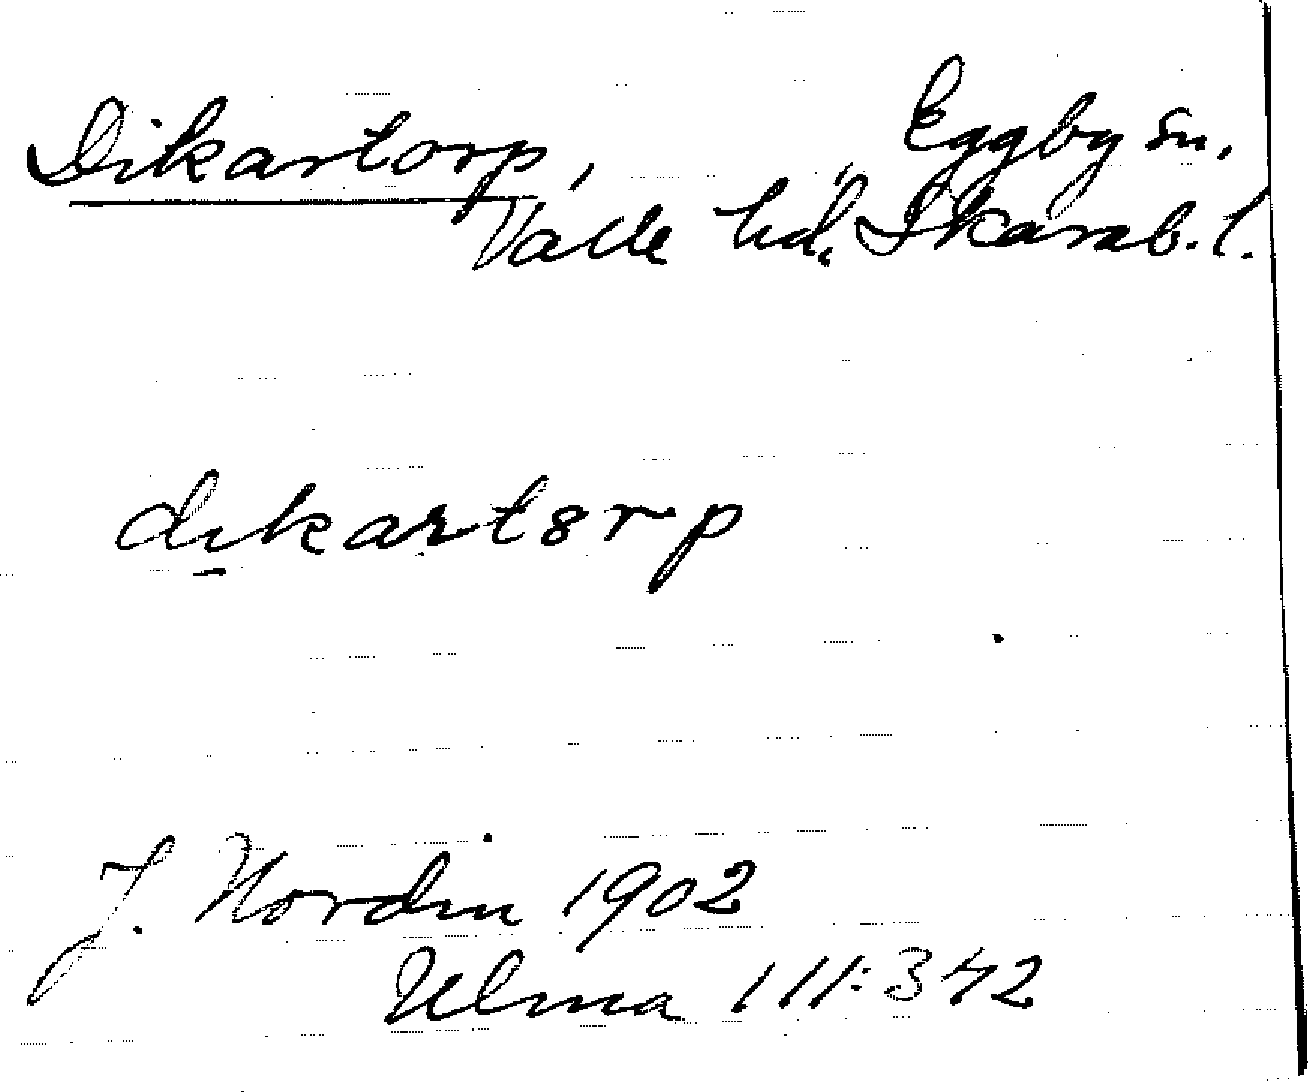 Dikartorp, Eggby sn.
Valle hd, Skarab. l.
dıkartorp
J. Nordin 1902
Ulma 111:342